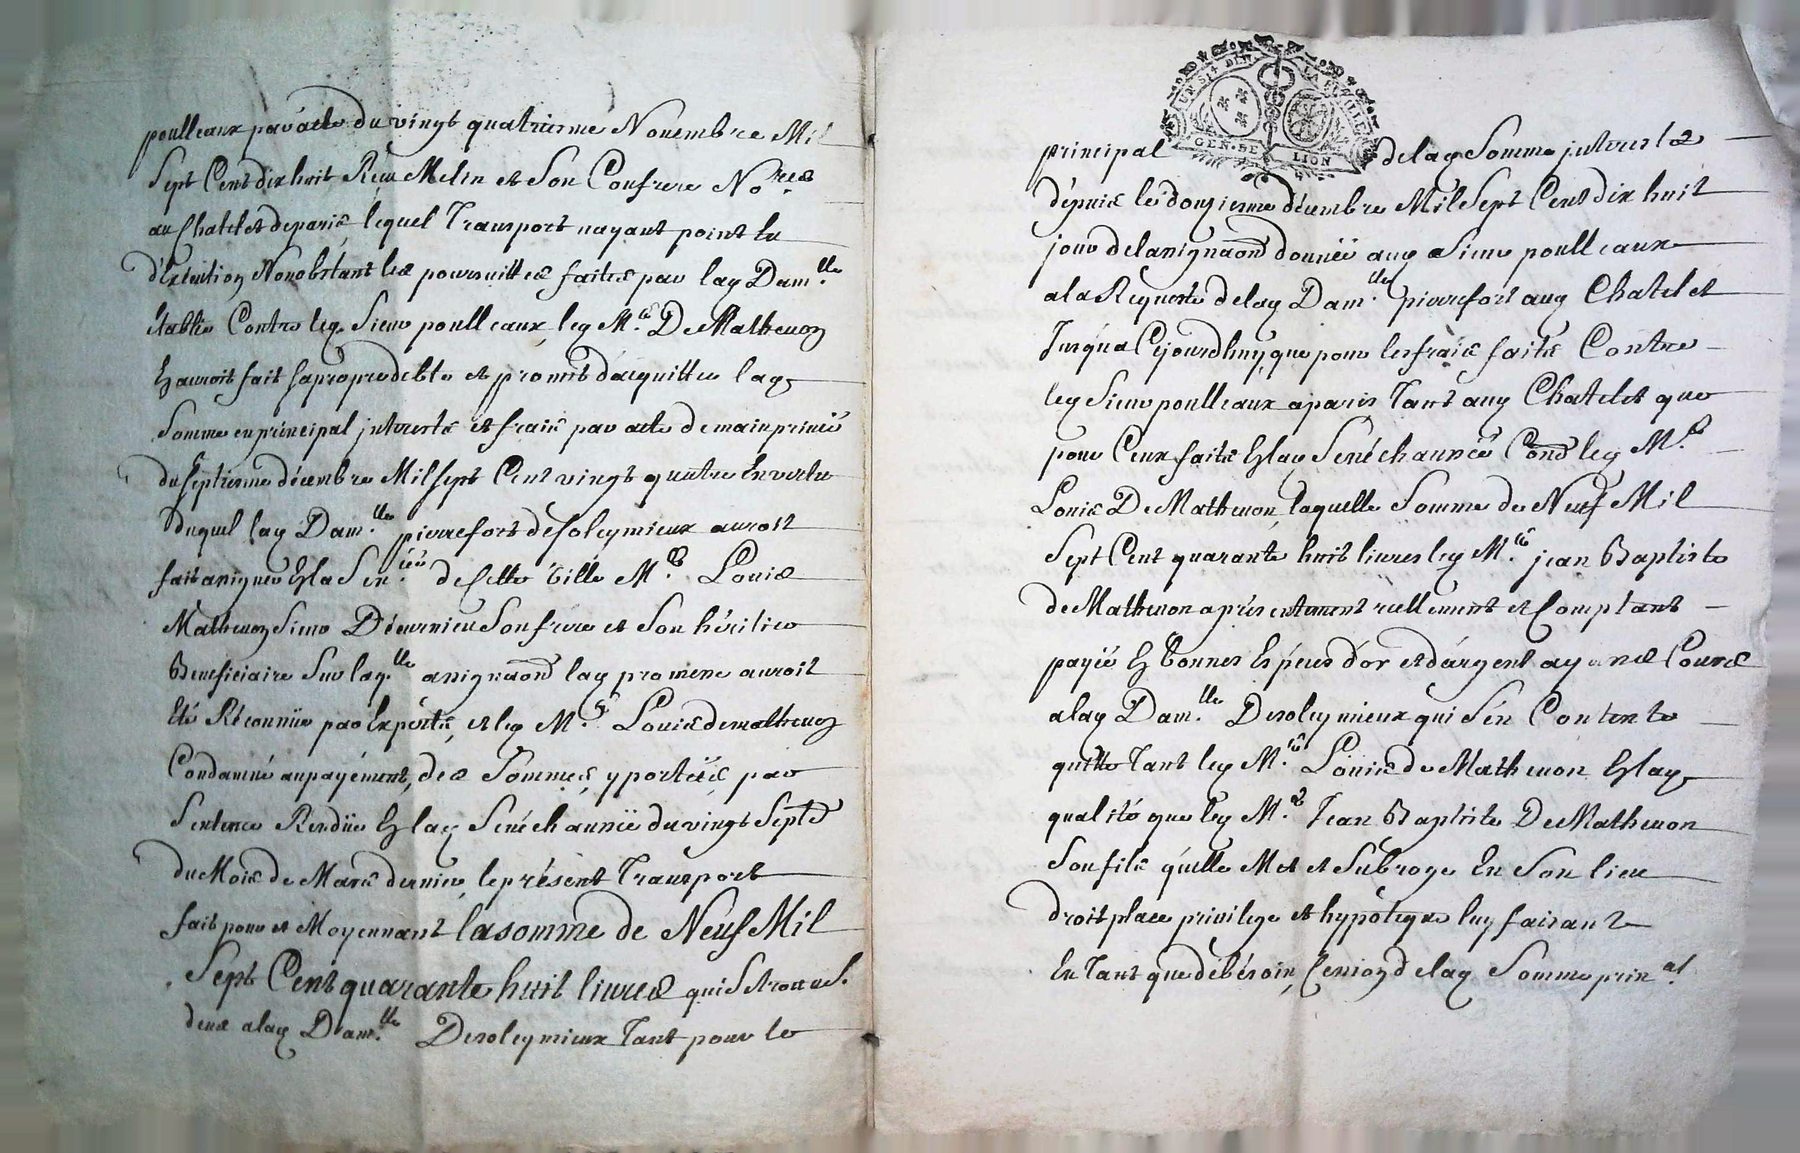 poulleaux par acte du vingt quatrieme Novembre Mil
Sept Cent dix huit Recu Melin et Son Confrere No.res
au Chatelet deparis, lequel Transport nayant point Eu
d'Exécution Nonobstant les poursuittes faites par lad Dam.lle
Etablie Contre led. Sieur poulleaux, led M.e De Mathevon
En auroit fait sapropre debte et promit d'acquitter lad
Somme en principal jnterests et frais par acte de main privée
du septieme décembre Mil sept Cent vingt quatre En vertu
duquel lad Dam.lle pierrefort desoleymieux auroit
fait assigner En la Sen.ée de Cette ville M.e Louis
Mathevon Sieur D' Son frere et Son héritier
Beneficiaire Sur laq.lle assignaon lad promesse auroit
Eté Réconnüe par Experts, et led M.e Louis demathevon
Condamné aupayement, des Sommes, y portées, par
Sentence Rendüe En lad Sénéchaussée du vingt Sept
du Mois de Mars dernier, le présent Transport
fait pour et Moyennant la somme de Neuf Mil
Sept Cent quarante huit livres qui Se trouve
deue a lad Dam.lle Desoleymieux Tant pour le
GEN. DE LION
principal delad Somme jnterests
dépuis le douzieme décembre Mil Sept Cent dix huit
jour de lassignaon donnée aud Sieur poulleaux
a la Requeste de lad Dam.lle pierrefort aud Chatelet
Jusqu'a Cejourdhuy, que pour les frais faits Contre
led Sieur poulleaux a paris Tant aud Chatelet que
pour Ceux faits En lad Sénéchaussée Con led M.e
Louis De Mathevon, laquelle Somme de Neuf Mil
Sept Cent quarante huit livres led M.e jean Baptiste
de Mathevon a présentement reellement et Comptant
payée En bonnes Espéces d'or et d'argent ayans Cours
a lad Dam.lle Desoleymieux qui S'en Contente
quitte Tant led M.e Louis de Mathevon En lad
qualité que led M.e Jean Baptiste De Mathevon
Son fils qu'elle Met et Subroge En Son lieu
droit place privilege et hypoteque luy faisant
En Tant que de bésoin, Cession de lad Somme prin.al